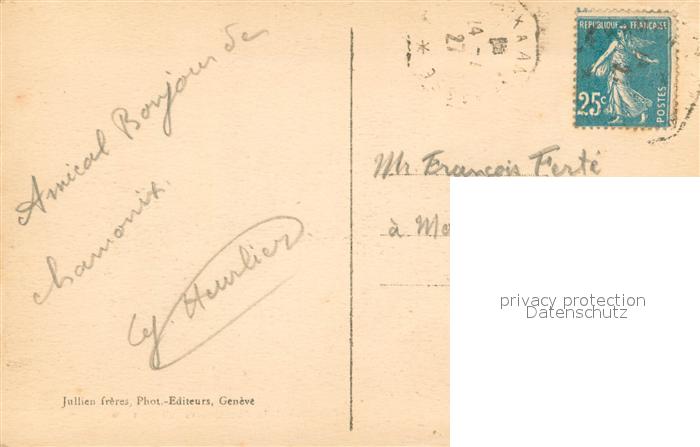 Amical Bonjour de
chamonix.
Heurlier
Jullien frères, Phot.-Editeurs, Genève
14-
27
REPUBLIQUE FRANÇAISE
25c
POSTES
Mr. François Ferté
à
privacy protection
Datenschutz